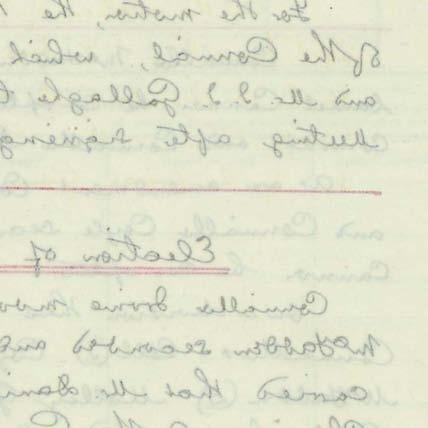 For the motion, the
of the Council, which
and Mr. J. J. Gallaghe
Meeting after signing
Election of
Councillor mov
McFadden seconded and
carried that Mr. Dani